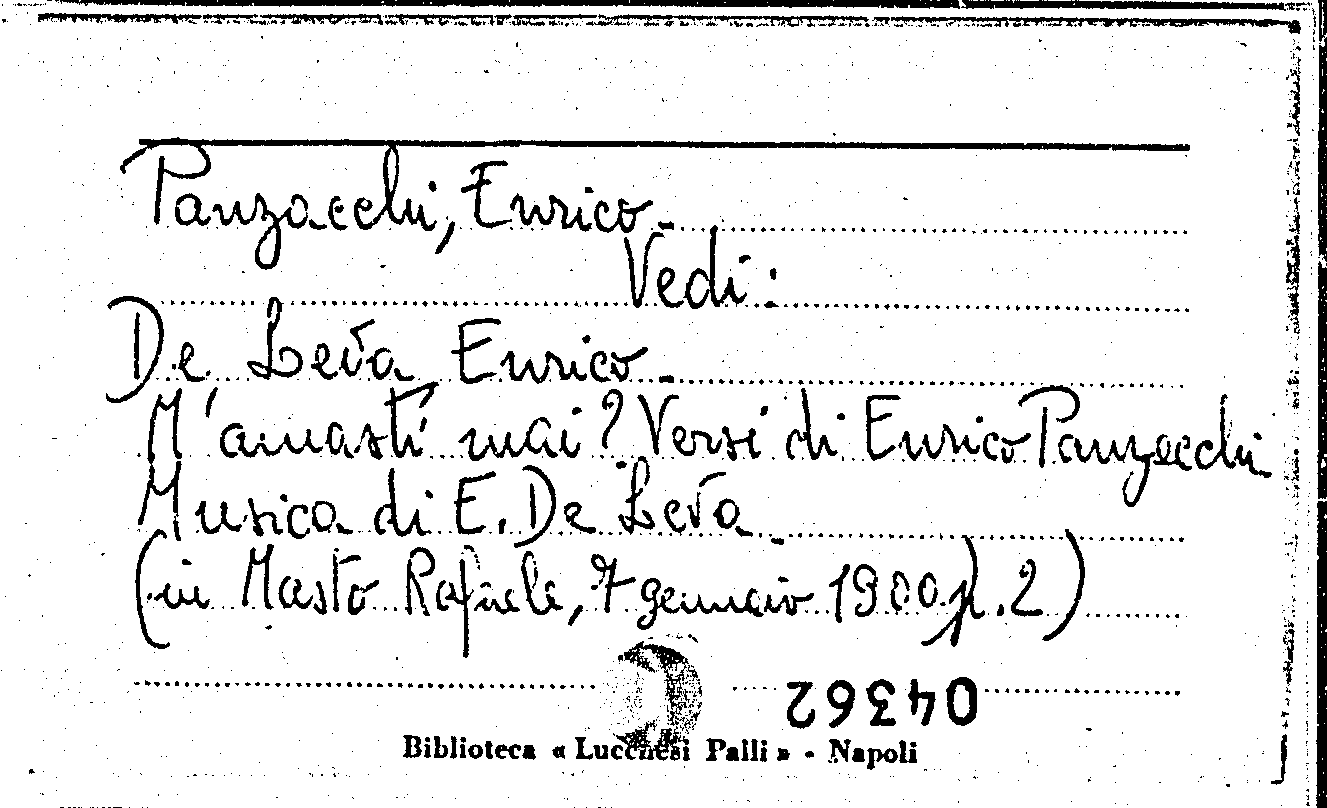 Panzacchi, Enrico -
Vedi:
De Leva Enrico -
M'amasti mai? Versi di Enrico Panzacchi
Musica di E. De Leva -
(in Masto Rafaele, 7 gennaio 1900, p. 2)
04362
Biblioteca « Lucchesi Palli » - Napoli